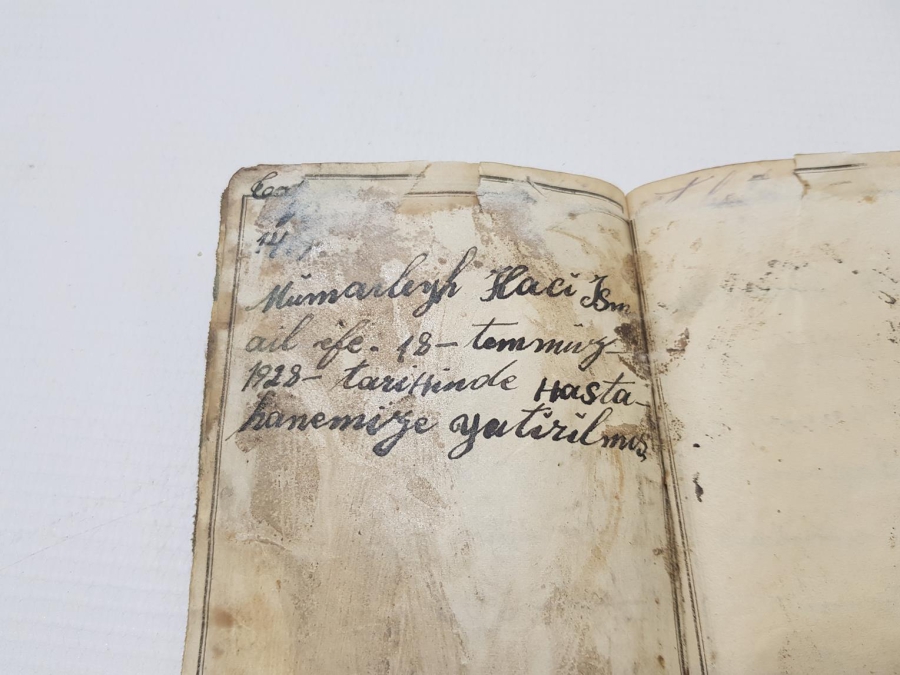 Mumarleyh Haci Ism
ail efe. 18- temmuz-
1928- tariHinde Hasta-
hanemize yatirilmış